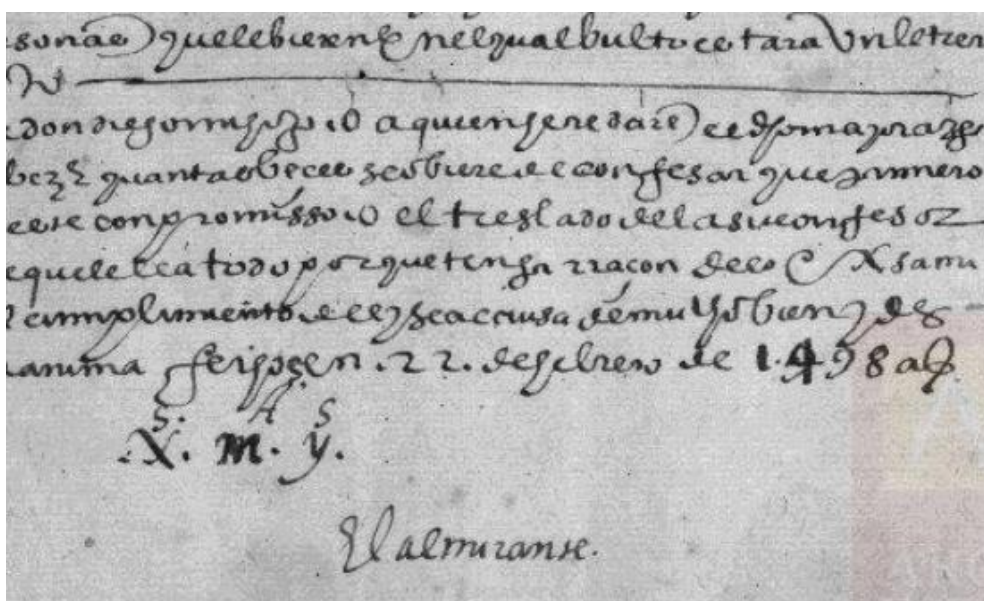 sonas que le bieren en el qual bulto estara un letre
don diego mi hijo o a quien heredare este dho mayorazgo
bez quantas beces se obiere de confesar que primero
este compromisso o el treslado del a su confesor
que le lea todo por que tenga rraçon de lo examin
cumplimiento del y sea causa de mucho bien y des
anima fecho en .22. de hebrero de 1498 as
S. A S
.X. m. y.
El almirante.